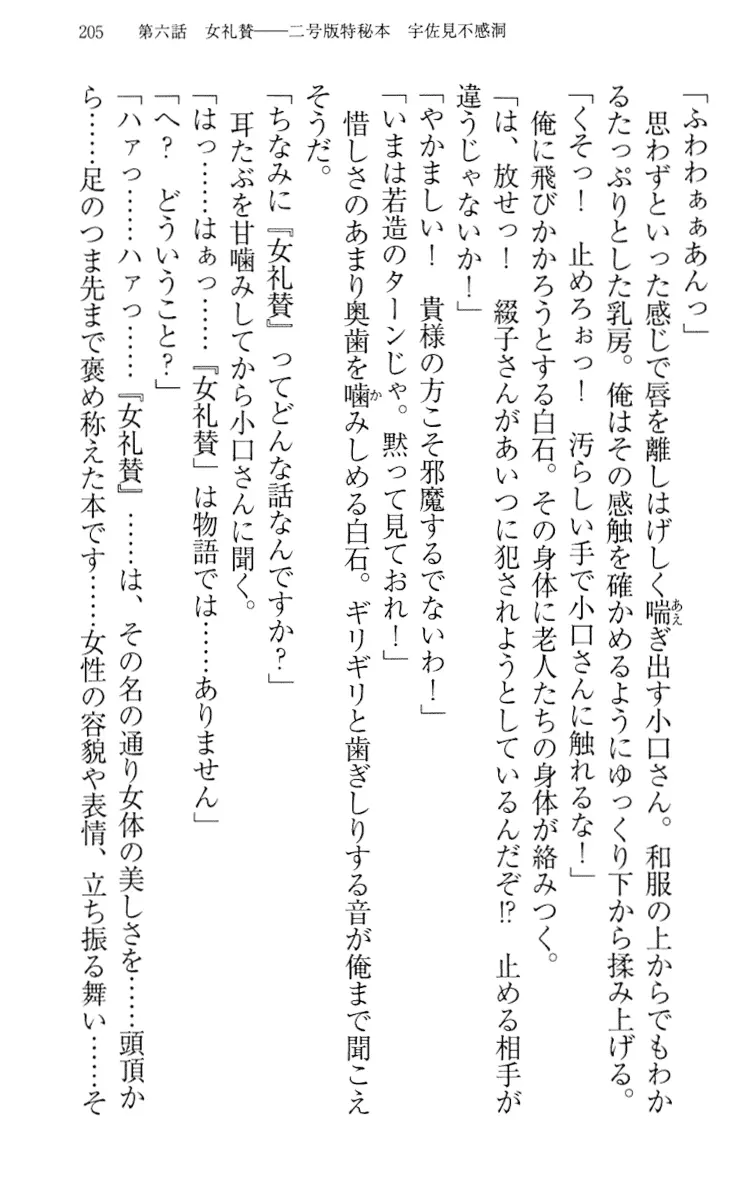 205　第六話　女礼賛――二号版特秘本　宇佐見不感洞
「ふわわぁぁあんっ」
　思わずといった感じで唇を離しはげしく喘あえぎ出す小口さん。和服の上からでもわか
るたっぷりとした乳房。俺はその感触を確かめるようにゆっくり下から揉み上げる。
「くそっ！　止めろぉっ！　汚らしい手で小口さんに触れるな！」
　俺に飛びかかろうとする白石。その身体に老人たちの身体が絡みつく。
「は、放せっ！　綴子さんがあいつに犯されようとしているんだぞ!?　止める相手が
違うじゃないか！」
「やかましい！　貴様の方こそ邪魔するでないわ！」
「いまは若造のターンじゃ。黙って見ておれ！」
　惜しさのあまり奥歯を噛かみしめる白石。ギリギリと歯ぎしりする音が俺まで聞こえ
そうだ。
「ちなみに『女礼賛』ってどんな話なんですか？」
　耳たぶを甘噛みしてから小口さんに聞く。
「はっ……はぁっ……『女礼賛」は物語では……ありません」
「へ？　どういうこと？」
「ハァっ……ハァっ……『女礼賛』……は、その名の通り女体の美しさを……頭頂か
ら……足のつま先まで褒め称えた本です……女性の容貌や表情、立ち振る舞い……そ